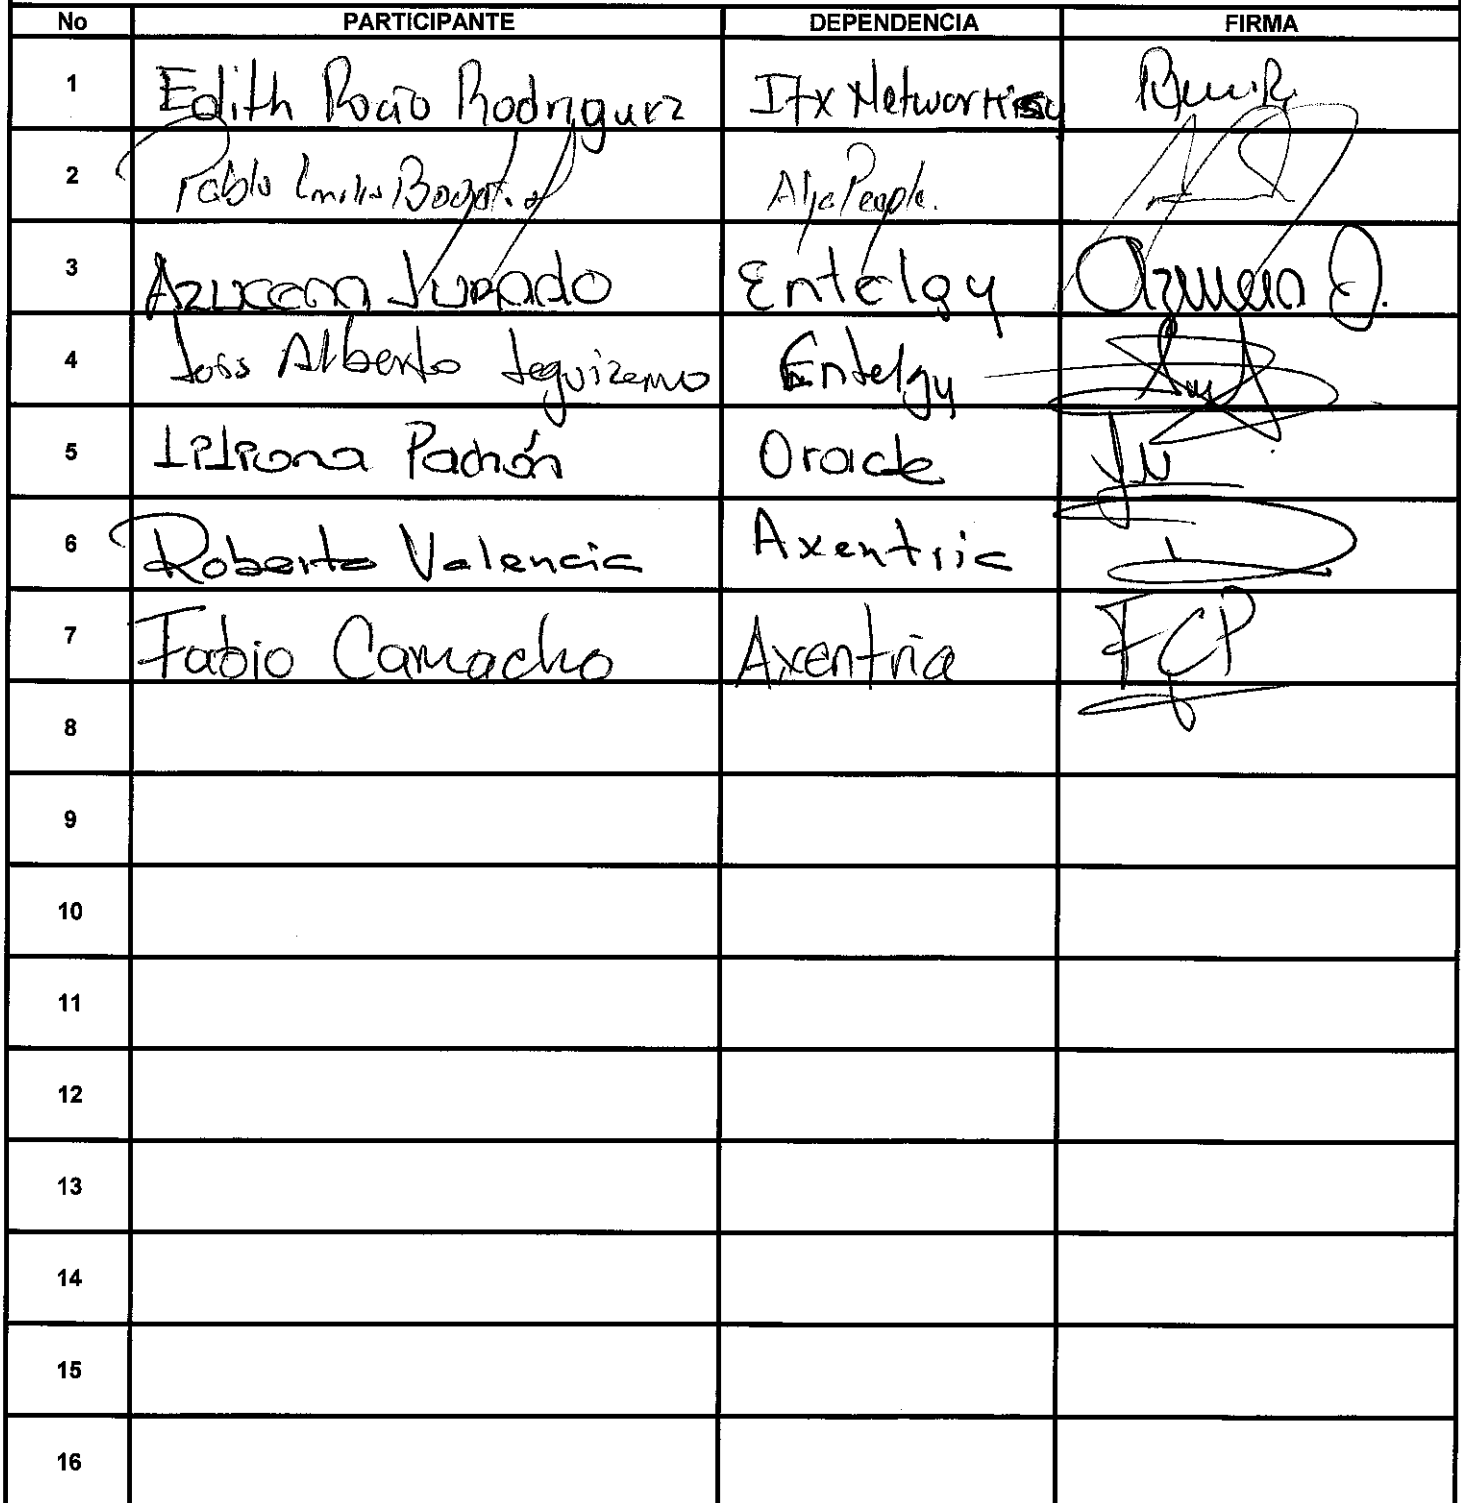 No PARTICIPANTE DEPENDENCIA FIRMA
1 Edith Rocio Rodriguez Itx Networking
2 Pablo Emilio
3 Azucena Jurado Entelgy Azucena J.
4 Alberto Leguizamo Entelgy
5 Liliana Pachón Oracle
6 Roberto Valencia Axentria
7 Fabio Camacho Axentria FCP
8
9
10
11
12
13
14
15
16